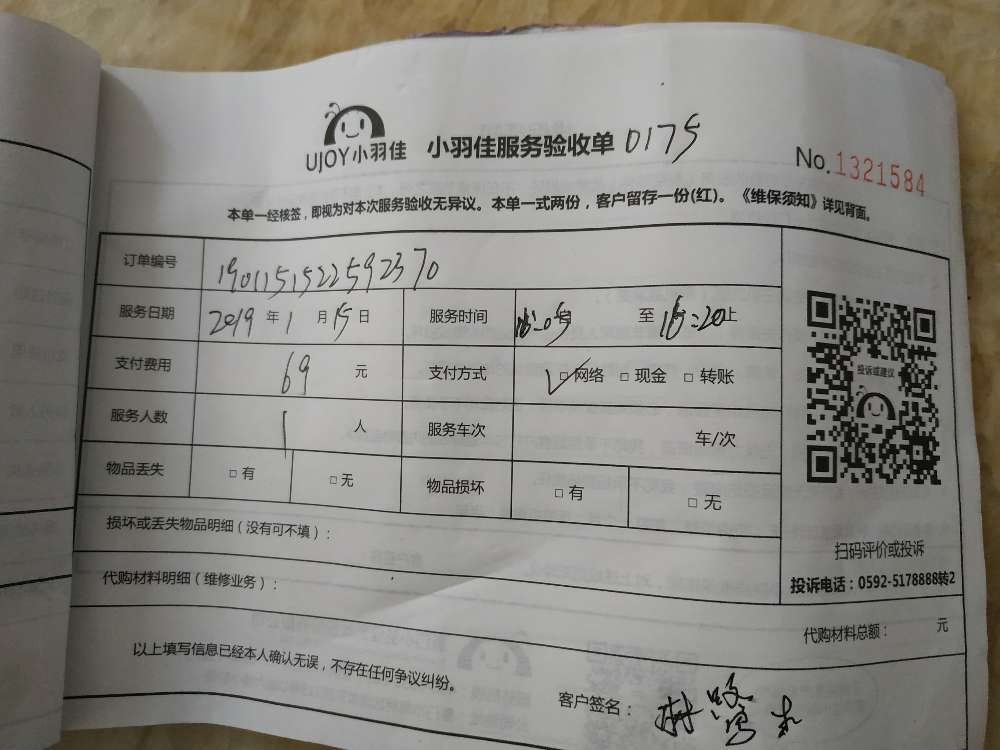 UJOY小羽佳 小羽佳服务验收单 0175
No.1321584
本单一经核签，即视为对本次服务验收无异议。本单一式两份，客户留存一份(红)。《维保须知》详见背面。
订单编号 19011515225923 70
服务日期 2019 年 1 月 15 日 服务时间 至 16:20 止
支付费用 69 元 支付方式 ✓□网络 □现金 □转账
服务人数 1 人 服务车次 车/次
物品丢失 □有 □无 物品损坏 □有 □无
投诉或建议
扫码评价或投诉
投诉电话：0592-5178888转2
损坏或丢失物品明细（没有可不填）：
代购材料明细（维修业务）：
代购材料总额： 元
以上填写信息已经本人确认无误，不存在任何争议纠纷。
客户签名： 林